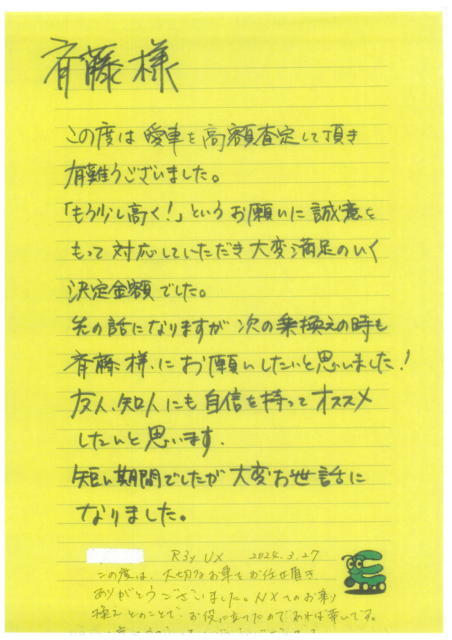 斉藤様
この度は愛車を高額査定して頂き
有難うございました。
「もう少し高く!」というお願いに誠意を
もって対応していただき大変満足のいく
決定金額でした。
先の話になりますが次の乗換えの時も
斉藤様にお願いしたいと思いました!
友人、知人にも自信を持ってオススメ
したいと思います.
短い期間でしたが大変お世話に
なりました。
R3y UX 2024.3.27
この度は、大切なお車をお任せ頂き
ありがとうございました。NXへのお乗り
換えとのことで、お役に立てたのであれば幸いです。